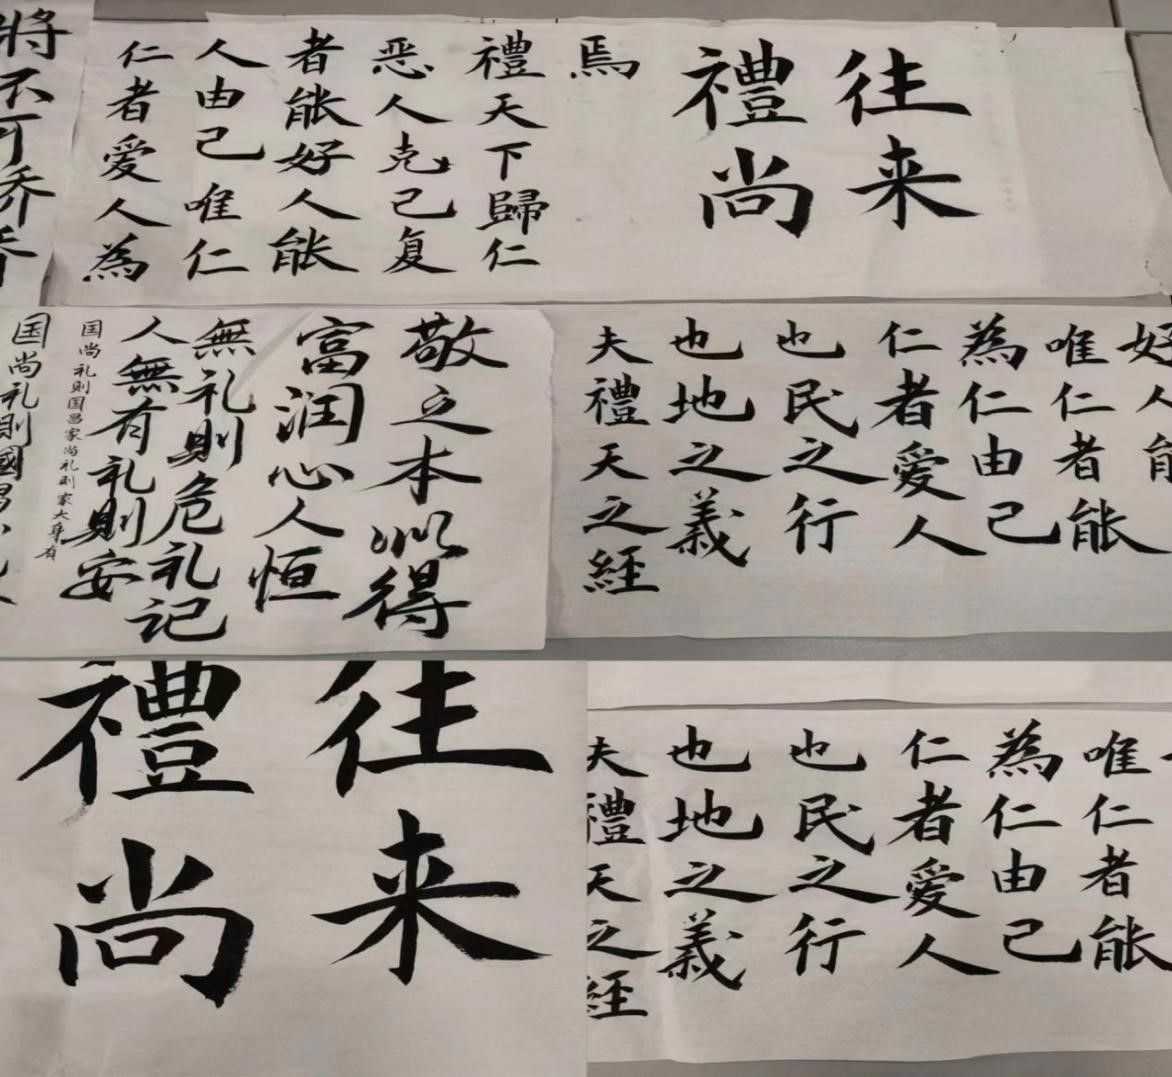 将不可
仁者爱人為
人由己唯仁
者能好人能
恶人克己复
禮天下歸仁
焉
禮尚
往来
国尚礼則國昌
国尚礼则国昌家尚礼则家大身有
人無有礼則安
無礼則危礼记
富润心人恒
敬之本以得
夫禮天之經
也地之義
也民之行
仁者爱人
為仁由己
唯仁者能
好人能
禮尚
往来
夫禮天之經
也地之義
也民之行
仁者爱人
為仁由己
唯仁者能